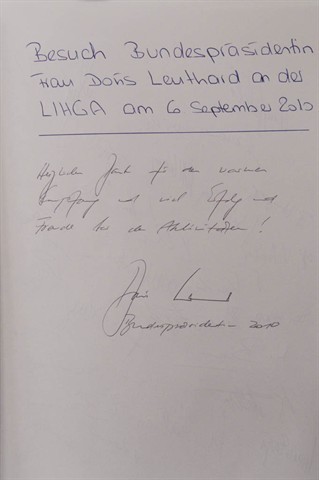 Besuch Bundespräsidentin
Frau Doris Leuthard an der
LIHGA am 6 September 2010
Herzlichen Dank für den warmen
Empfang und viel Erfolg und
Freude bei den Aktivitäten!
Doris Leuthard
Bundespräsidentin 2010